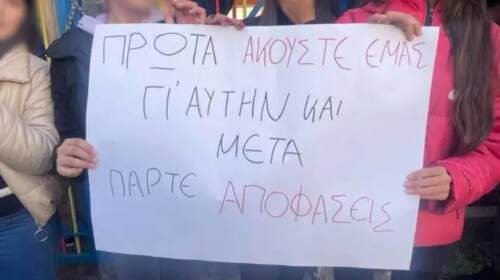 ΠΡΩΤΑ ΑΚΟΥΣΤΕ ΕΜΑΣ
ΓΙ' ΑΥΤΗΝ ΚΑΙ
ΜΕΤΑ
ΠΑΡΤΕ ΑΠΟΦΑΣΕΙΣ